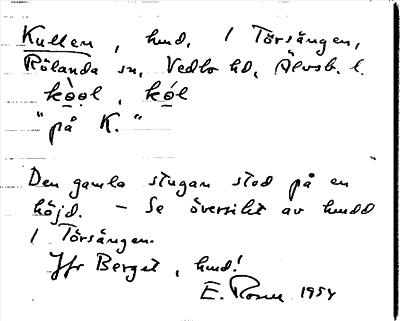 Kullen, hmd, 1 Törsängen,
Rölanda sn, Vedbo hd, Älvsb. l.
kò̤o̤l, kó̤l
"på K."
Den gamla stugan stod på en
höjd. — Se översikt av hmdd
1 Törsängen.
Jfr Berget, hmd!
E. Rosell 1954